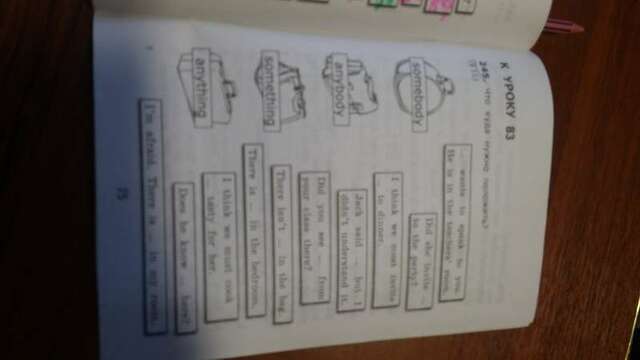 К УРОКУ 83
245. Что куда нужно положить?
somebody
anybody
something
anything
... wants to speak to you.
He is in the teachers' room.
Did she invite ...
to the party?
I think we must invite
... to dinner.
Jack said ..., but I
didn't understand it.
Did you see ... from
your class there?
There isn't ... in the bag.
There is ... in the bedroom.
I think we must cook
... tasty for her.
Does he know ... here?
I'm afraid. There is ... in my room.